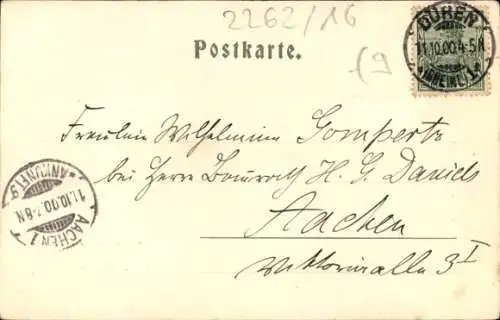 2262/16
Postkarte.
(9
DÜREN
11.10.00. 4-5 N
(RHEINL.) 1
Fräulein Wilhelmine Gompertz
bei Herrn Baurath H. G. Daniels
Aachen
Viktoriaallee 3 I
AACHEN 1
11.10.00. 7-8 N
ANKUNFT